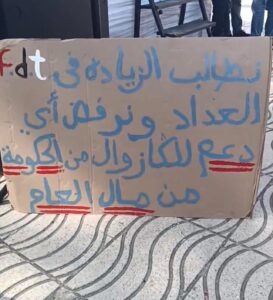 F.d.t
نطالب الزيادة في
العداد ونرفض أي
دعم للكازوال من الحكومة
من مال العام